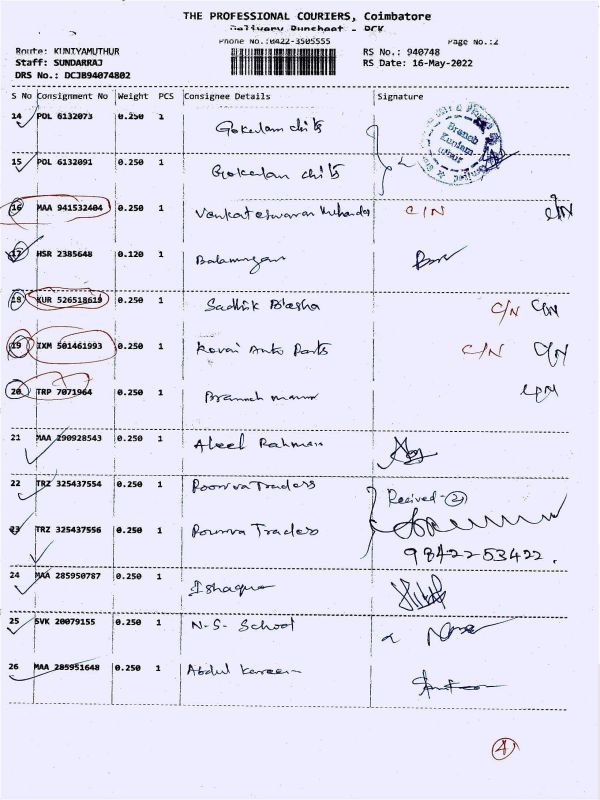 THE PROFESSIONAL COURIERS, Coimbatore
Delivery Runsheet - PCK
Phone No.:0422-3505555 Page No.:2
Route: KUNIYAMUTHUR RS No.: 940748
Staff: SUNDARRAJ RS Date: 16-May-2022
DRS No.: DCJB94074802
S No Consignment No Weight PCS Consignee Details Signature
14 POL 6132073 0.250 1 Gokulam chits
15 POL 6132091 0.250 1 Gokulam chits
16 MAA 941532404 0.250 1 C/N C/N
17 HSR 2385648 0.120 1 Balamurgan
18 KUR 526518618 0.250 1 Sadhik C/N C/N
19 IXM 501461993 0.250 1 Kovai Auto Parts C/N C/N
20 TRP 7071964 0.250 1
21 MAA 290928543 0.250 1 Rahman
22 TRZ 325437554 0.250 1 Traders Recived - 2
23 TRZ 325437556 0.250 1 Traders
98422 53422.
24 MAA 285950787 0.250 1
25 SVK 20079155 0.250 1 N.S. School
26 MAA 285951648 0.250 1 Abdul Kareem
4